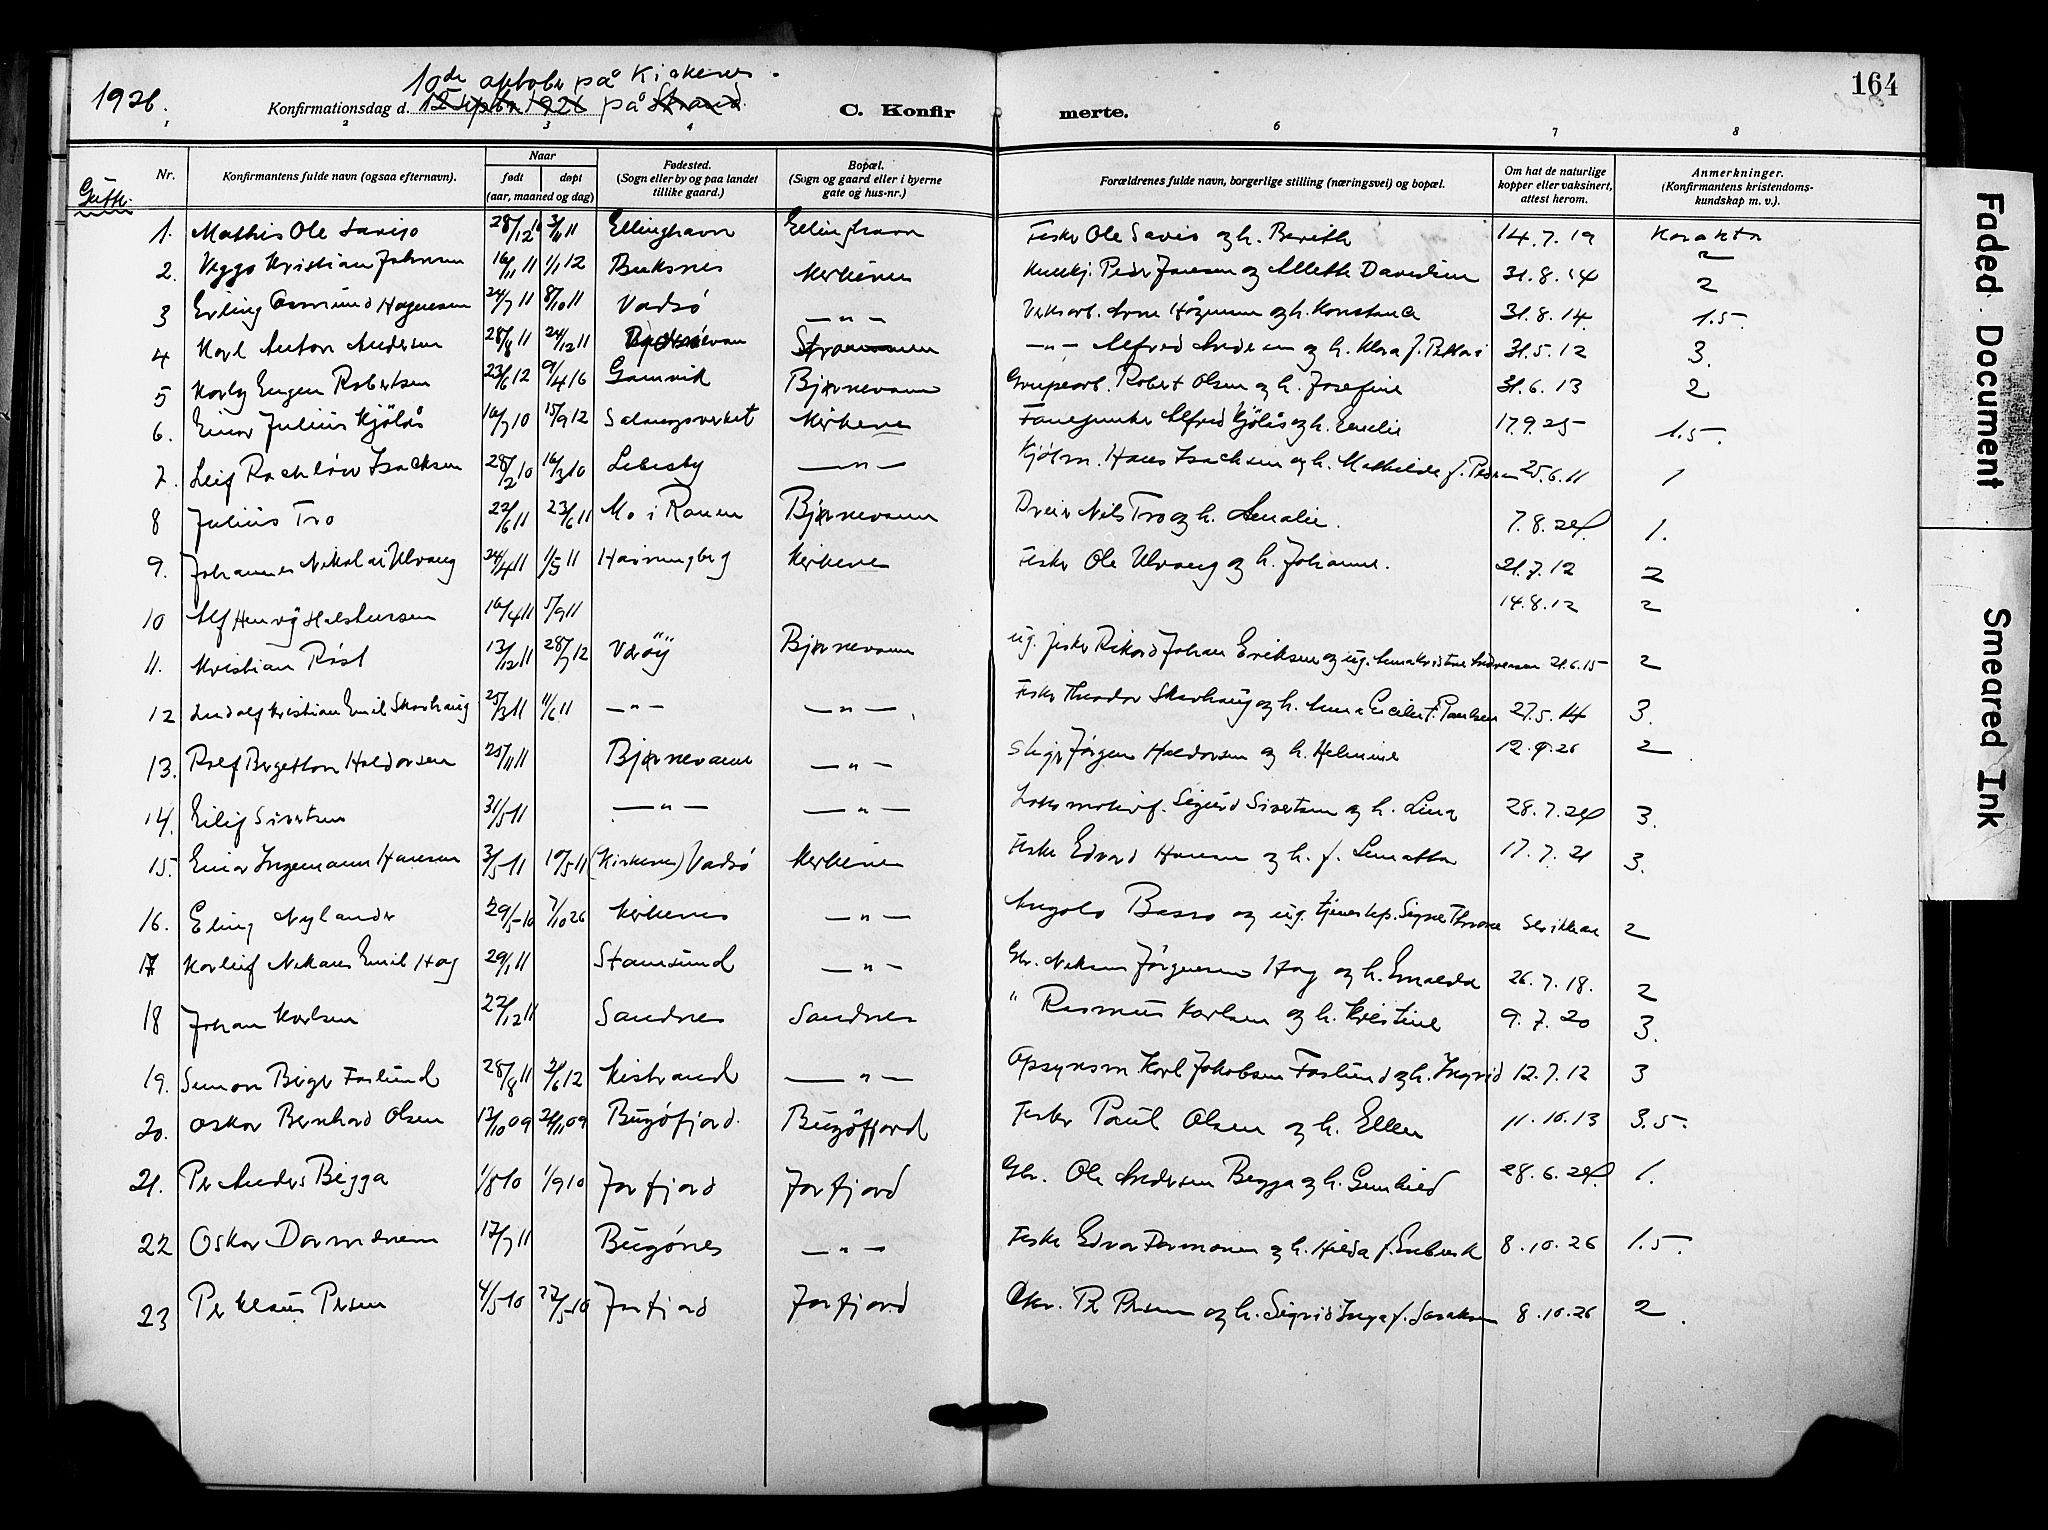 1926.
10de oktober på Kirkenes.
Konfirmationsdag d. 12 septbr 1926 på Strand.
C. Konfirmerte.
164
1 2 3 4 6 7 8
Nr. Konfirmantens fulde navn (ogsaa efternavn). Naar født døpt (aar, maaned og dag) Fødested. (Sogn eller by og paa landet tillike gaard.) Bopæl. (Sogn og gaard eller i byerne gate og hus-nr.) Forældrenes fulde navn, borgerlige stilling (næringsvei) og bopæl. Om hat de naturlige kopper eller vaksinert, attest herom. Anmerkninger. (Konfirmantens kristendomskundskap m. v.).
Gutter
1. Mathis Ole Savio 28/12 10 3/11 11 Ellinghavn Ellinghavn Fisker Ole Savio og h. Berith 14.7.19 Karakter 2
2. Viggo Kristian Johnsen 16/11 11 1/1 12 Buksnes Kirkenes Peder Jansen og Alette Davidsen 31.8.14 2
3 Erling Osmund Hagensen 24/7 11 8/10 11 Vadsø — " — Verksarb. Arne og h. Konstance 31.8.14 1.5
4 Karl Anton Andersen 28/8 11 24/12 11 Strømmen — " — Alfred Andersen og h. Klara f. 31.5.12 3.
5 Eugen Robertsen 23/6 12 9/4 16 Gamvik Bjørnevann Grubearb. Robert Olsen og h. Josefine 31.6.13 2
6. Einar Julius Kjölås 16/7 10 15/9 12 Salangsverket Kirkenes Fanejunker Alfred Kjölås og h. Emelie 17.9.25 1.5.
7. Leif Isachsen 28/2 10 16/3 10 Lebesby — " — Kjøbm. Hans Isachsen og h. Mathilde f. 25.6.11 1
8 Julius Tro 22/6 11 23/6 11 Mo i Ranen Bjørnevann Dreier Nils Tro og h. Amalie. 7.8.24 1.
9. Johannes Nikolai Ulvang 24/4 11 1/5 11 Havningberg Kirkenes Fisker Ole Ulvang og h. Johanne. 21.7.12 2
10 Alf Henry Halstensen 16/4 11 5/9 11 14.8.12 2
11. Kristian Røst 13/12 11 28/7 12 Værøy Bjørnevann ug. fisker Rikard Johan Eriksen og ug. Anna Kristine Andreassen 21.6.15 2
12 Ludolf Kristian Emil Skarhaug 25/3 11 11/6 11 — " — — " — Fisker Theodor Skarhaug og h. Anna Cecilie f. Paulsen 27.5.14 3.
13. Rolf Bergetton Haldorsen 25/11 11 Bjørnevann — " — Stiger Jørgen Haldorsen og h. Helmine 12.9.26 2
14. Eilif Sivertsen 31/5 11 — " — — " — Lokomotivf. Sigurd Sivertsen og h. Lina 28.7.24 3.
15. Einar Ingemann Hansen 3/5 11 10/5 11 (Kirkenes) Vadsø Kirkenes Fisker Edvard Hansen og h. f. 17.7.21 3.
16. Eling Nylander 29/5 10 7/10 26 Kirkenes — " — Angolo Basso og ug. tjenestep. Signe 2
17 Korleif Nikans Emil Hag 29/1 11 Stamsund — " — Gbr. Jørgensen Hag og h. 26.7.18. 2
18 Johan Karlsen 22/12 11 Sandnes Sandnes " Rasmus Karlsen og h. Kristine 9.7.20 3.
19. Simon Birger Foslund 28/8 11 2/6 12 Kistrand — " — Opsynsm Karl Jakobsen Foslund og h. Ingrid 12.7.12 3
20. Oskar Bernhard Olsen 13/10 09 21/11 09 Bugøfjord. Bugöfjord Fisker Paul Olsen og h. Ellen 11.10.13 3.5.
21. Per Anders Bigga 1/8 10 1/9 10 Jarfjord Jarfjord Gbr. Ole Andersen Bigga og h. Gunhild 28.6.24 1.
22 Oskar Dormenen 17/7 11 Bugønes — " — Fisker Edvar Dormenen og h. Hilda f. 8.10.26 1.5.
23 Per Klaus Persen 4/5 10 22/5 10 Jarfjord Jarfjord Gbr. Per Persen og h. Sigrid Inga f. 8.10.26 2.
Faded Document
Smeared Ink